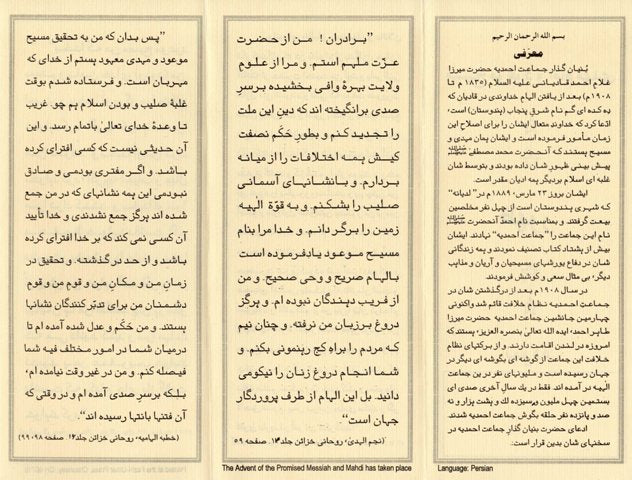 بسم الله الرحمان الرحيم
معرّفی
بُنیان گذار جماعت احمدیه حضرت میرزا
غلام احمد قادیانی علیه السلام (۱۸۳۵ م تا
۱۹۰۸م) بعد از یافتن الهام خداوندی در قادیان که
به کده ای گم نام شرقِ پنجاب (هندوستان) است،
ادّعا کرد که خداوند متعال ایشان را برای اصلاح این
زمان مأمور فرموده است و ایشان همان مهدی و
مسیح هستند که آنحضرت محمد مصطفیٰ ﷺ
پیش بینی ظهورِ شان داده بودند و بتوسط شان
غلبه ای اسلام بردیگر همه ادیان مقدر است.
ایشان بروز ۲۳ مارس، ۱۸۸۹م در" لدیانه"
که شهری هندوستان است از چهل نفر مخلصین
بیعت گرفتند. و بمناسبت نام احمدؐ آنحضرت ﷺ
نام این جماعت را "جماعت احمدیه" نهادند. ایشان
بیش از هشتاد کتاب تصنیف نمودند و همه زندگانی
شان در دفاع یورشهای مسیحیان و آریان و مذاهب
دیگر، بی مثال سعی و کوشش فرمودند.
در سال ۱۹۰۸م بعد از درگذشتن شان در
جماعت احمدیه نظام خلافت قائم شد واکنونی
چهارمین جانشین جماعت احمدیه حضرت میرزا
طاهر احمد، ایده الله تعالیٰ بنصره العزیز، هستند که
امروزه در لندن اقامت دارند. و از برکتهای نظام
خلافت این جماعت از گوشه ای بگوشه ای دیگر در
جهان رسیده است و ملیونهای نفر در ین جماعت
الٰهیه در آمده اند. فقط در یك سال آخری صدی ای
بستمین چهل ملیون و سیزده لك و هشت هزار و نه
صد و پانزده نفر حلقه بگوش جماعت احمدیه شدند.
ادعای حضرت بنیان گذار جماعت احمدیه در
سخنهای شان بدین قرار است:
Language: Persian
”برادران! من از حضرت
عزّت ملهم استم. و مرا از علومِ
ولایت بهرهٔ وافی بخشیده برسرِ
صدی برانگیخته اند که دینِ این ملت
را تجدید کنم و بطور حَکَم نصفت
کیش همه اختلافات را از میانه
بردارم. و بانشانهای آسمانی
صلیب را بشکنم. و به قوّة الٰهیه
زمین را برگردانم. و خدا مرا بنام
مسیحِ موعود یادفرموده است
بالهام صریح و وحی صحیح. و من
از فریب دهندگان نبوده ام. و هرگز
دروغ برزبان من نرفته. و چنان نیم
که مردم را براه کج رهنمونی بکنم. و
شما انجام دروغ زنان را نیکومی
دانید. بل این الهام از طرف پروردگار
جهان است“.
(نجم الهدیٰ، روحانی خزائن جلد۱۴. صفحه ۵۹
The Advent of the Promised Messiah and Mahdi has taken place
”پس بدان که من به تحقیق مسیحِ
موعود و مهدی معهود هستم از خدای که
مهربان است. و فرستاده شدم بوقت
غلبهٔ صلیب و بودن اسلام هم چو. غریب
تا وعدهٔ خدای تعالیٰ باتمام رسد. و این
آن حدیثی نیست که کسی افترای کرده
باشد. و اگر مفتری بودمی و صادق
نبودمی این همه نشانهای که در من جمع
شده اند هرگز جمع نشدندی و خدا تأیید
آن کسی نمی کند که بر خدا افترای کرده
باشد و از حد درگذشته. و تحقیق در
زمانِ من و مکانِ من و قوم من و قوم
دشمنان من برای تدبّر کنندگان نشانها
هستند. و من حَکَم و عدل شده آمده ام تا
درمیان شما در امور مختلف فیه شما
فیصله کنم. و من در غیر وقت نیامده ام،
بلکه برسرِ صدی آمده ام و در وقتی که
آن فتنها بانتها رسیده اند“.
(خطبه الهامیه، روحانی خزائن جلد۱۶. صفحه ۹۸، ۹۹)